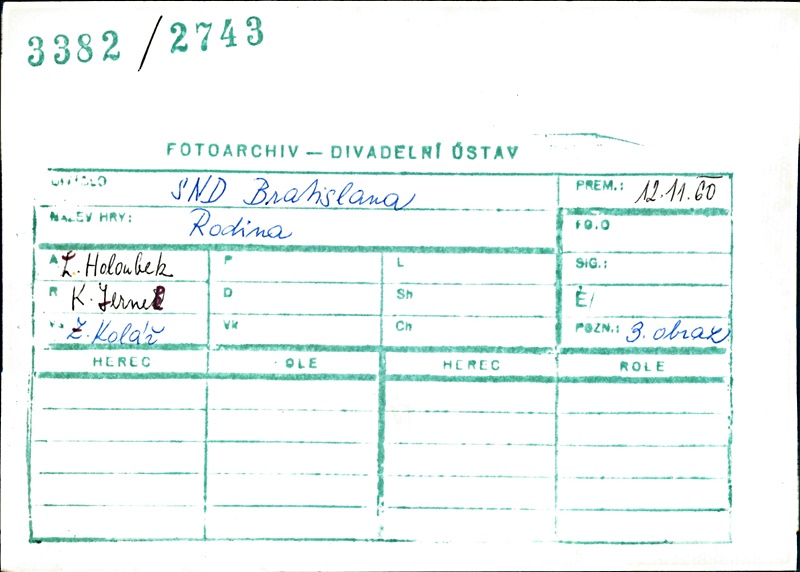 3382 / 2743
FOTOARCHIV — DIVADELNÍ ÚSTAV
DIVADLO SND Bratislava PREM.: 12.11.60
NÁZEV HRY: Rodina FG.O
A L. Holoubek P L SIG.:
R K. Jernek D Sh Č/
Vs Z. Kolář Vk Ch POZN.: 3. obraz
HEREC OLE HEREC ROLE